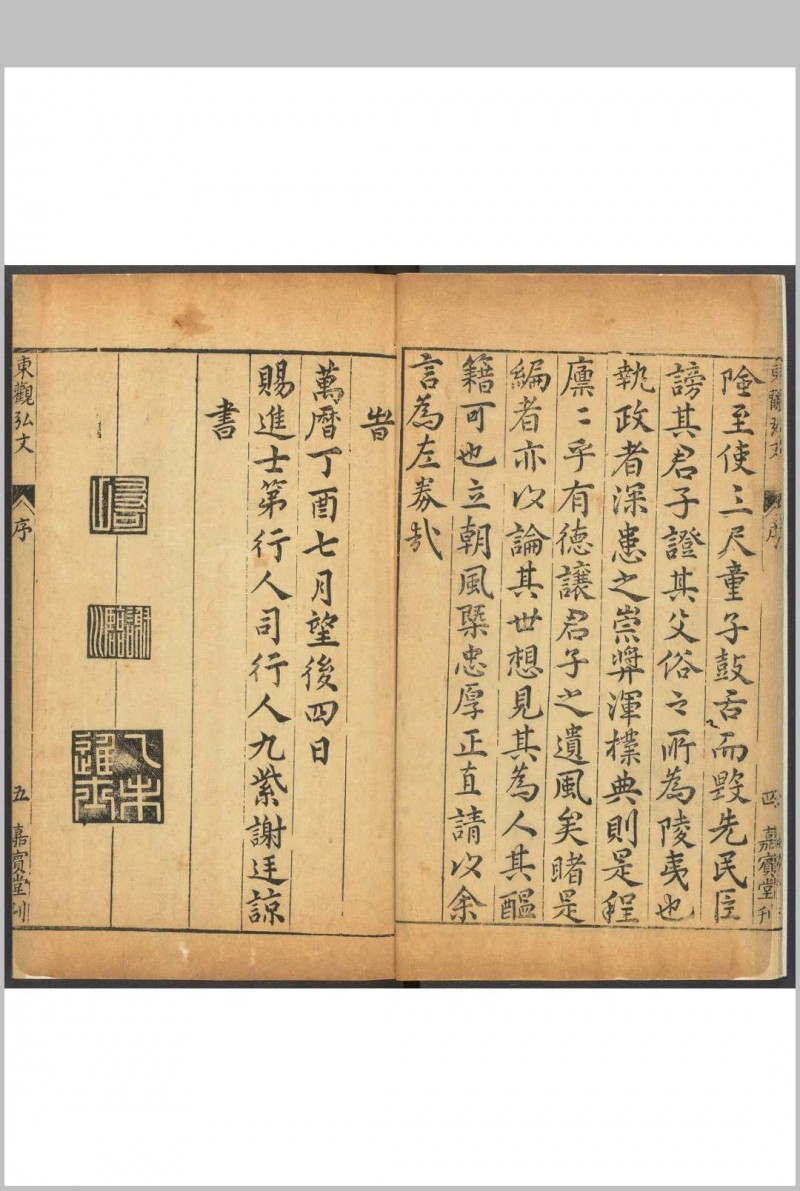 險至使三尺童子鼓舌而毀先民臣
謗其君子證其父俗之所為陵夷也
執政者深患之崇獎渾樸典則是程
廪〻乎有德讓君子之遺風矣睹是
編者亦以論其世想見其為人其醞
籍可也立朝風槩忠厚正直請以余
言為左券哉
四 嘉賓堂刊
旹
萬曆丁酉七月望後四日
賜進士第行人司行人九紫謝廷諒
書
東觀弘文
序
五 嘉賓堂刊